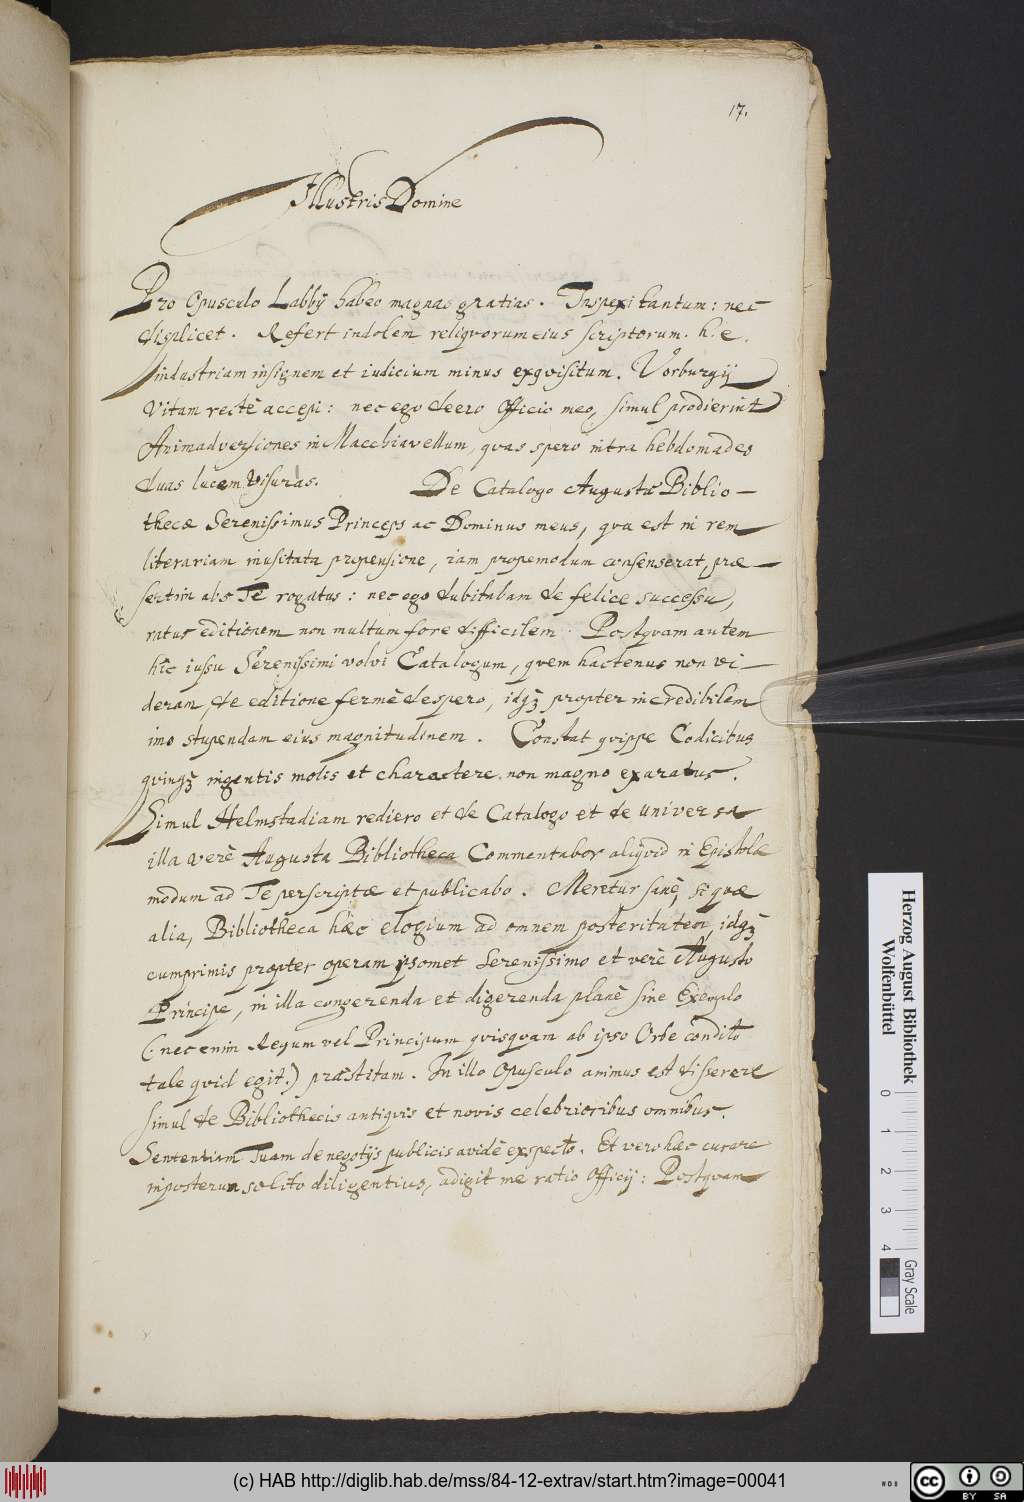 17.
Illustris Domine
Pro Opusculo Labbij habeo magnas gratias. Inspexi tantum: nec
displicet. Refert indolem reliqvorum eius scriptorum. h. e.
industriam insignem et iudicium minus exqvisitum. Vorburgij
Vitam rectè accepi: nec ego deero Officio meo, simul prodierint
Animadversiones in Macchiavellum, qvas spero intra hebdomades
duas lucem visuras. De Catalogo Augustæ Biblio-
thecæ Serenissimus Princeps ac Dominus meus, qva est in rem
literariam inusitata propensione, iam propemodum consenserat, præ-
sertim abs Te rogatus: nec ego dubitabam de felice successu,
ratus editionem non multum fore difficilem. Postqvam autem
hîc iussu Serenissimi volvi Catalogum, qvem hactenus non vi-
deram, de editione fermè despero, idqꝫ propter incredibilem
imo stupendam eius magnitudinem. Constat qvippe Codicibus
qvinqꝫ ingentis molis et charactere non magno exaratus.
Simul Helmstadiam rediero et de Catalogo et de universa
illa verè Augusta Bibliotheca Commentabor aliqvid in Epistolæ
modum ad Te perscriptæ et publicabo. Meretur sanè, si qvæ
alia, Bibliotheca hæc elogium ad omnem posteritatem, idqꝫ
cumprimis propter operam ipsomet Serenissimo et verè Augusto
Principe, in illa congerenda et digerenda planè sine Exemplo
(: nec enim Regum vel Principum qvisqvam ab ipso Orbe condito
tale qvid egit.) præstitam. In illo Opusculo animus est disserere
simul de Bibliothecis antiqvis et novis celebrioribus omnibus.
Sententiam Tuam de negotijs publicis avidè expecto. Et vero hæc curare
inposterum solito diligentius, adigit me ratio Officij: Postqvam
Herzog August Bibliothek
Wolfenbüttel
0 1 2 3 4
Gray Scale
(c) HAB http://diglib.hab.de/mss/84-12-extrav/start.htm?image=00041
cc BY SA